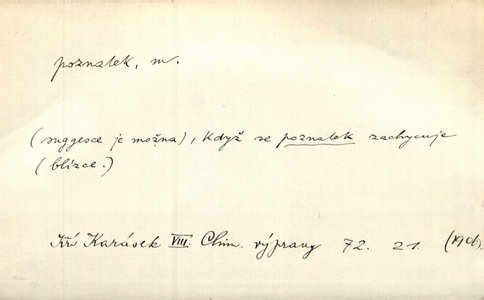 poznatek, m.
(suggesce je možna), když se poznatek zachycuje
(blízce.)
Jiří Karásek VIII. Chim. výpravy 72. 21. (1906)